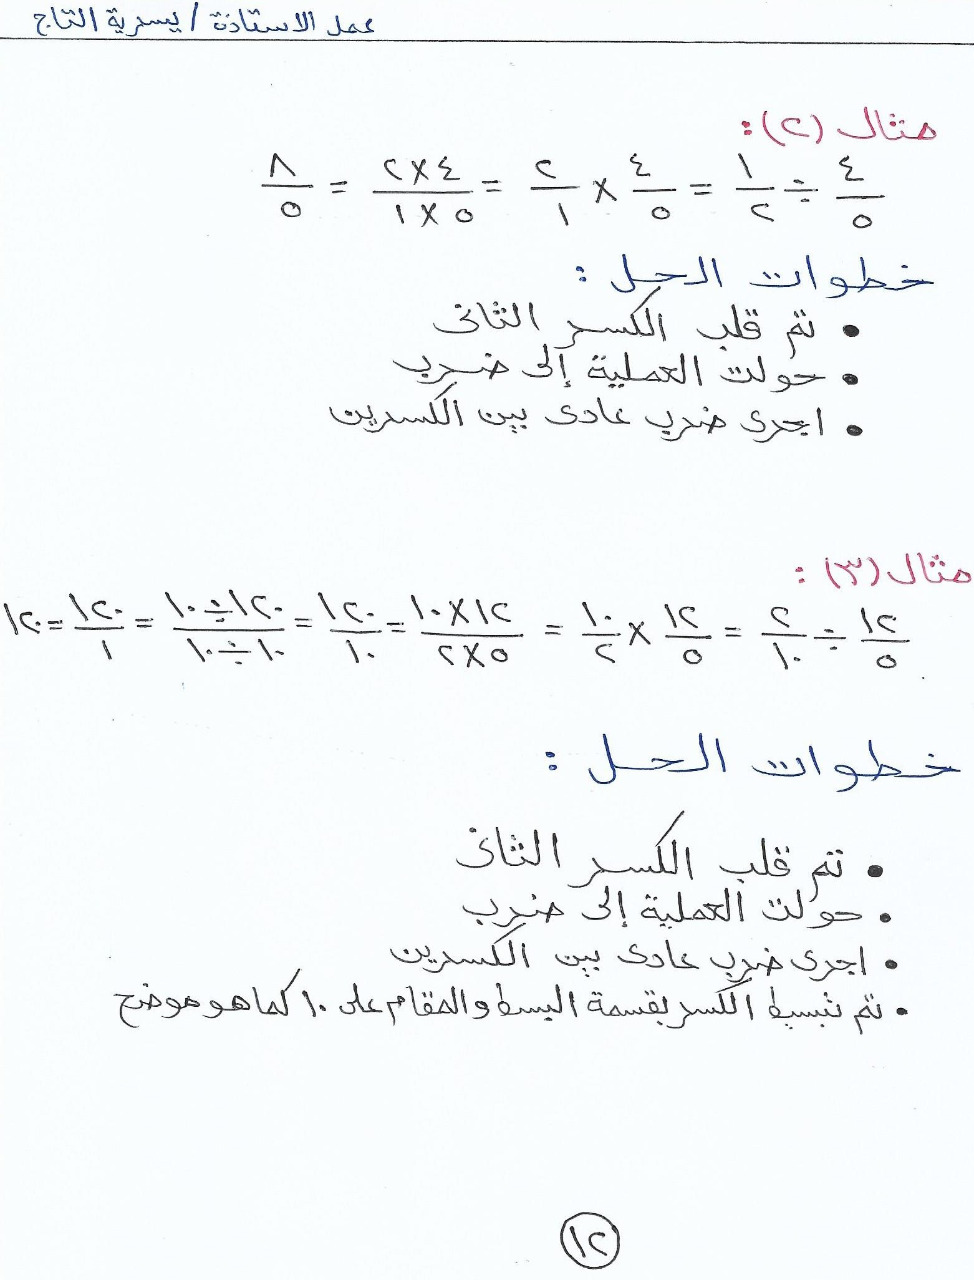 عمل الاستاذة / يسرية التاج
مثال (٢):
٤/٥ ÷ ١/٢ = ٤/٥ × ٢/١ = ٤×٢/٥×١ = ٨/٥
خطوات الحل :
• تم قلب الكسر الثانى
• حولت العملية إلى ضرب
• اجرى ضرب عادى بين الكسرين
مثال (٣) :
١٢/٥ ÷ ٢/١٠ = ١٢/٥ × ١٠/٢ = ١٢×١٠/٥×٢ = ١٢٠/١٠ = ١٢٠÷١٠/١٠÷١٠ = ١٢٠/١ = ١٢٠
خطوات الحل :
• تم قلب الكسر الثانى
• حولت العملية إلى ضرب
• اجرى ضرب عادى بين الكسرين
• تم تبسيط الكسر بقسمة البسط والمقام على ١٠ كما هو موضح
١٢